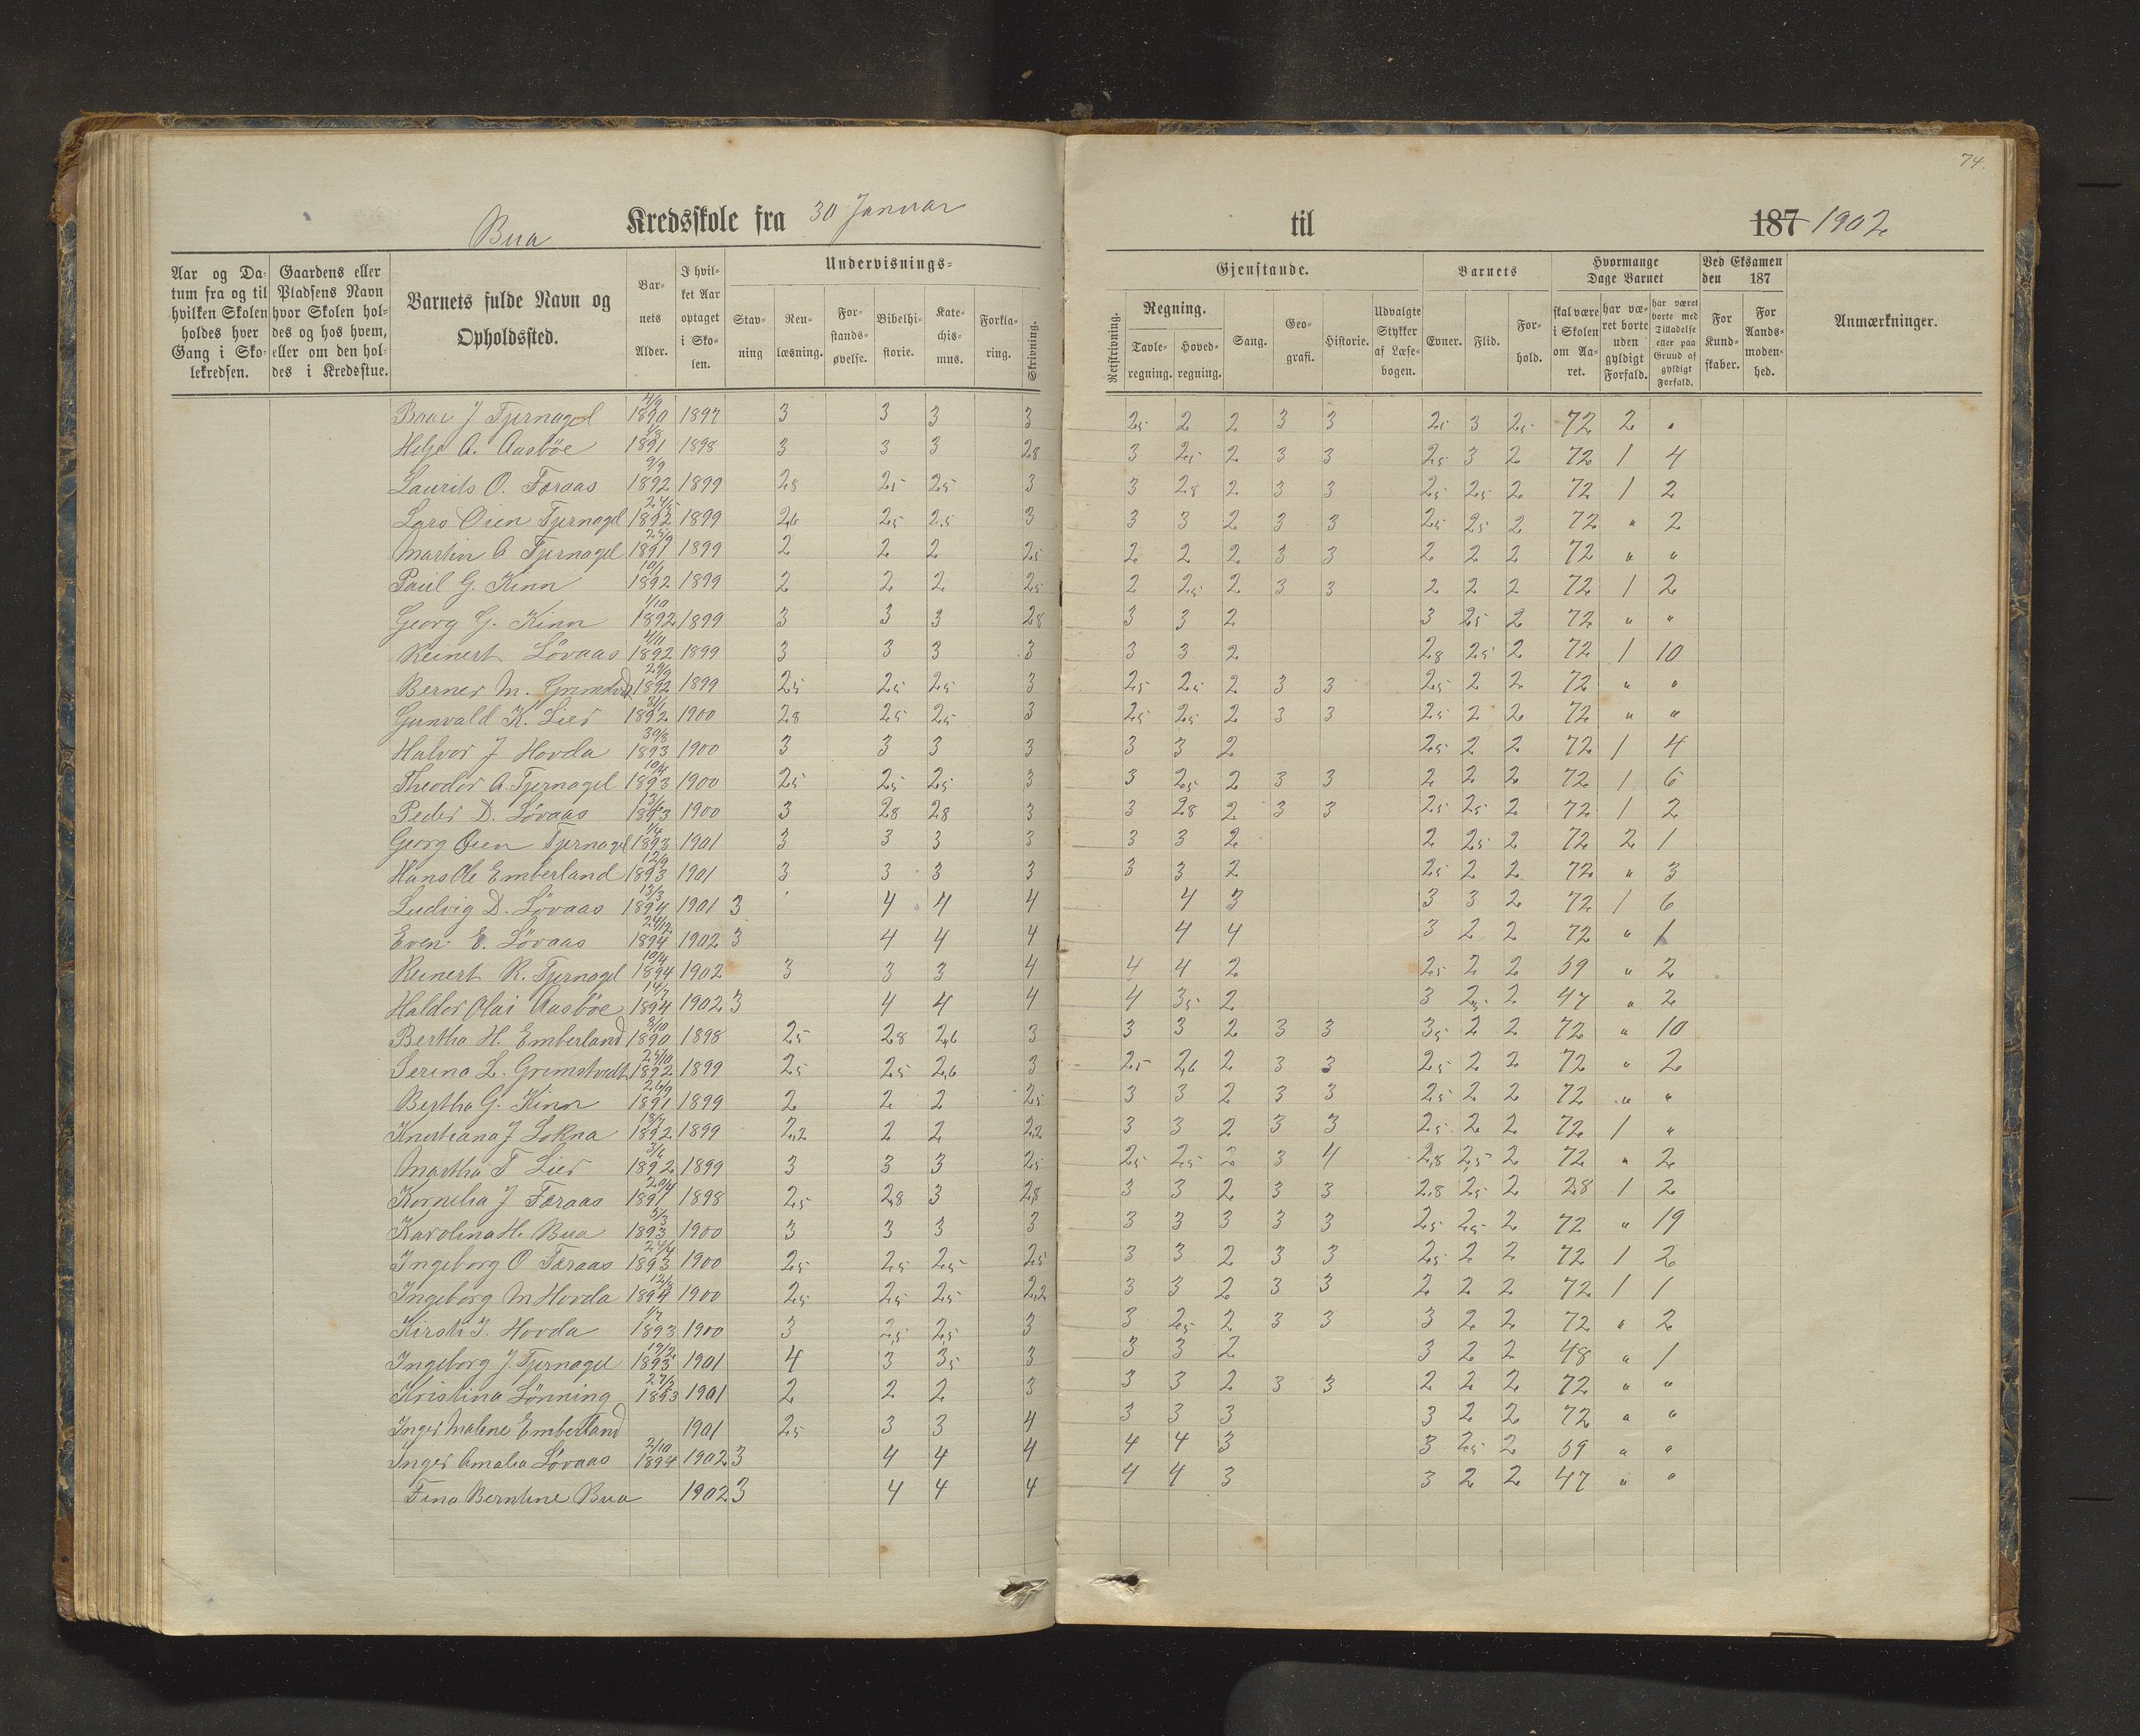 74.
Bua Kredsskole fra 30 Januar til 187 1902
Aar og Datum fra og til hvilken Skolen holdes hver Gang i Skolekredsen. Gaardens eller Pladsens Navn hvor Skolen holdes og hos hvem, eller om den holdes i Kredsstue. Barnets fulde Navn og Opholdssted. Barnets Alder. I hvilket Aar optaget i Skolen. Undervisnings- Gjenstande. Barnets Hvormange Dage Barnet Ved Eksamen den 187 Anmærkninger.
Stavning Renlæsning. Forstandsøvelse. Bibelhistorie. Katechismus. Forklaring. Skrivning. Retskrivning. Regning. Tavleregning. Hovedregning. Sang. Geografi. Historie. Udvalgte Stykker af Læsebogen. Evner. Flid. Forhold. skal være i Skolen om Aaret. har været borte uden gyldigt Forfald. har været borte med Tilladelse eller paa Grund af gyldigt Forfald. For Kundskaber. For Aandsmodenhed.
Baar J Tjernagel 4/9 1890 1897 3 3 3 3 25 2 2 3 3 25 3 25 72 2 "
Helje A. Aasböe 1/8 1891 1898 3 3 3 28 3 25 2 3 3 25 3 2 72 1 4
Laurits O. Færaas 9/9 1892 1899 28 25 25 3 3 28 2 3 3 25 25 2 72 1 2
Lars Öien Tjernagel 24/5 1892 1899 26 25 25 3 3 3 2 3 3 25 25 2 72 " 2
Martin A Tjernagel 25/9 1891 1899 2 2 2 25 2 2 2 3 3 2 2 2 72 " "
Paul G. Kinn 10/1 1892 1899 2 2 2 25 2 25 2 3 3 2 2 2 72 1 2
Georg G. Kinn 1/10 1892 1899 3 3 3 28 3 3 2 3 25 2 72 " "
Reinert Lövaas 4/11 1892 1899 3 3 3 3 3 3 2 28 25 2 72 1 10
Berner M. Grimstvedt 29/9 1892 1899 25 25 25 3 25 25 2 3 3 25 2 2 72 " "
Gunvald K. Lier 31/1 1892 1900 28 25 25 3 25 25 2 3 3 25 2 2 72 " "
Halvor J Hovda 30/8 1893 1900 3 3 3 3 3 3 2 25 2 2 72 1 4
Theodor A. Tjernagel 10/4 1893 1900 25 25 25 3 3 25 2 3 3 2 2 2 72 1 6
Peder D. Lövaas 1893 1900 3 28 28 3 3 28 2 3 3 25 25 2 72 1 2
Georg Öien Tjernagel 1/4 1893 1901 3 3 3 3 3 3 2 2 25 2 72 2 1
Hans Ole Emberland 12/9 1893 1901 3 3 3 3 3 3 2 25 2 2 72 " 3
Ludvig D. Lövaas 13/3 1894 1901 3 4 4 4 4 3 3 3 2 72 1 6
Even E. Lövaas 24/12 1894 1902 3 4 4 4 4 4 3 2 2 72 " 1
Reinert R. Tjernagel 10/4 1894 1902 3 3 3 4 4 4 2 25 2 2 59 " 2
Haldor Olai Aasböe 14/7 1894 1902 3 4 4 4 4 35 2 3 25 2 47 " 2
Bertha H. Emberland 3/10 1890 1898 25 28 26 3 3 3 2 3 3 35 2 2 72 " 10
Serina L. Grimstvedt 25/10 1892 1899 25 25 26 3 25 26 2 3 3 25 2 2 72 " 2
Bertha G. Kinn 26/9 1891 1899 2 2 2 25 3 3 2 3 3 25 2 2 72 " "
Kristiana J Lokna 1892 1899 22 2 2 22 3 3 2 3 3 25 2 2 72 1 "
Martha T Lier 3/6 1892 1899 3 3 3 25 25 25 2 3 4 28 25 2 72 " 2
Kornelia J Færaas 20/4 1891 1898 25 28 3 28 3 3 2 3 3 28 25 2 28 1 2
Karolina H. Bua 5/3 1893 1900 3 3 3 3 3 3 3 3 3 25 25 2 72 " 19
Ingeborg O Færaas 24/4 1893 1900 25 25 25 25 3 3 2 3 3 25 2 2 72 1 2
Ingeborg M Hovda 1894 1900 25 25 25 22 3 3 2 3 3 2 2 2 72 1 1
Kirsti J. Hovda 1/7 1893 1900 3 25 25 3 3 25 2 3 3 3 2 2 72 " 2
Ingeborg J Tjernagel 19/2 1893 1901 4 3 35 3 3 3 2 3 2 2 48 " 1
Kristina Lönning 1893 1901 2 2 2 3 3 3 2 3 3 2 2 2 72 " "
Inger Malene Emberland 1901 25 3 3 4 3 3 3 3 2 2 72 " "
Inger Amalia Lövaas 2/10 1894 1902 3 4 4 4 4 4 3 3 25 2 59 " "
Tina Berntine Bua 1902 3 4 4 4 4 4 3 3 2 2 47 " "